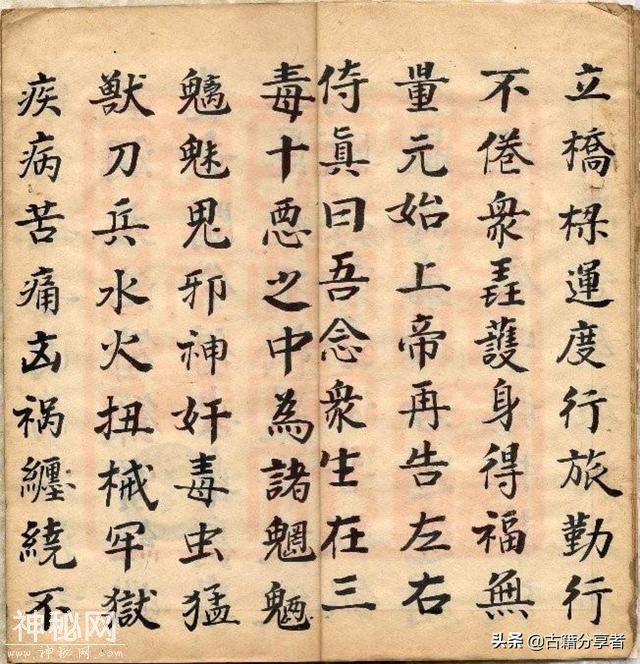 立橋樑運度行旅勤行
不倦衆護身得福無
量元始上帝再告左右
侍眞曰吾念衆生在三
毒十悪之中為諸魍魎
魑魅鬼邪神奸毒虫猛
獸刀兵水火扭械牢獄
疾病苦痛凶禍纏繞不
神秘网
www.神秘网.com
头条 @古籍分享者